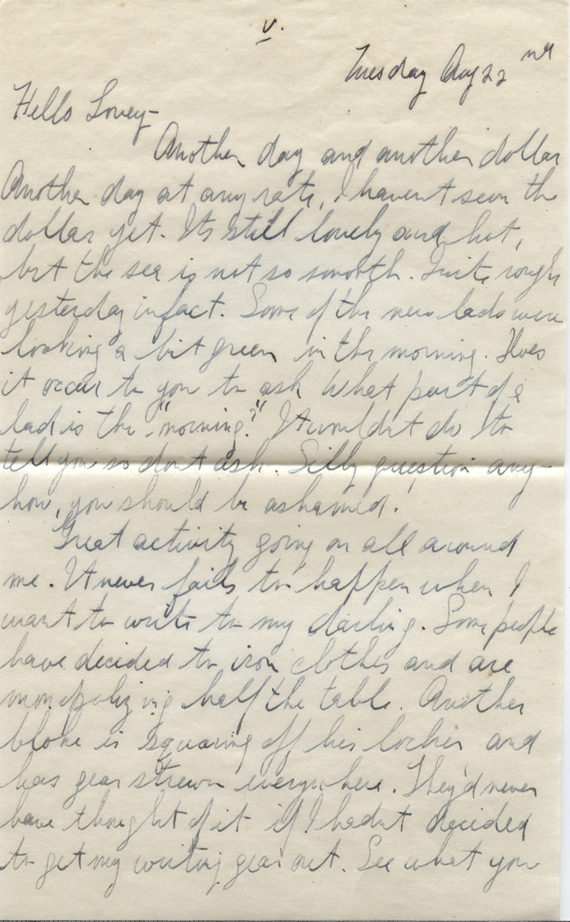 V.
Tuesday Aug 22nd
Hello Lovey-
Another day and another dollar
Another day at any rate, I havent seen the
dollar yet. Its still lovely and hot,
but the sea is not so smooth. Quite rough
yesterday in fact. Some of the new lads were
looking a bit green in the morning. Does
it occur to you to ask what part of a
lad is the "morning?" It wouldnt do to
tell you so dont ask. Silly question any-
how, you should be ashamed.
Great activity going on all around
me. It never fails to happen when I
want to write to my darling. Some people
have decided to iron clothes and are
monopolizing half the table. Another
bloke is squaring off his locker and
has gear strewn everywhere. They'd never
have thought of it if I hadnt decided
to get my writing gear out. See what you